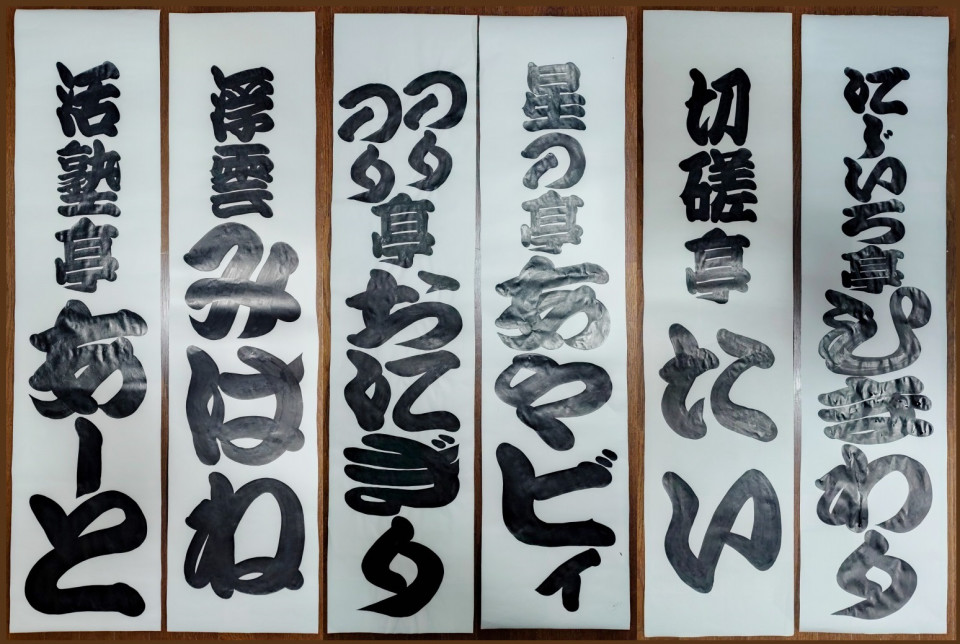 にじいろ亭ひまわり
切磋亭たい
星の亭あやビィ
のりのり亭おにぎり
浮雲みはね
活塾亭あーと